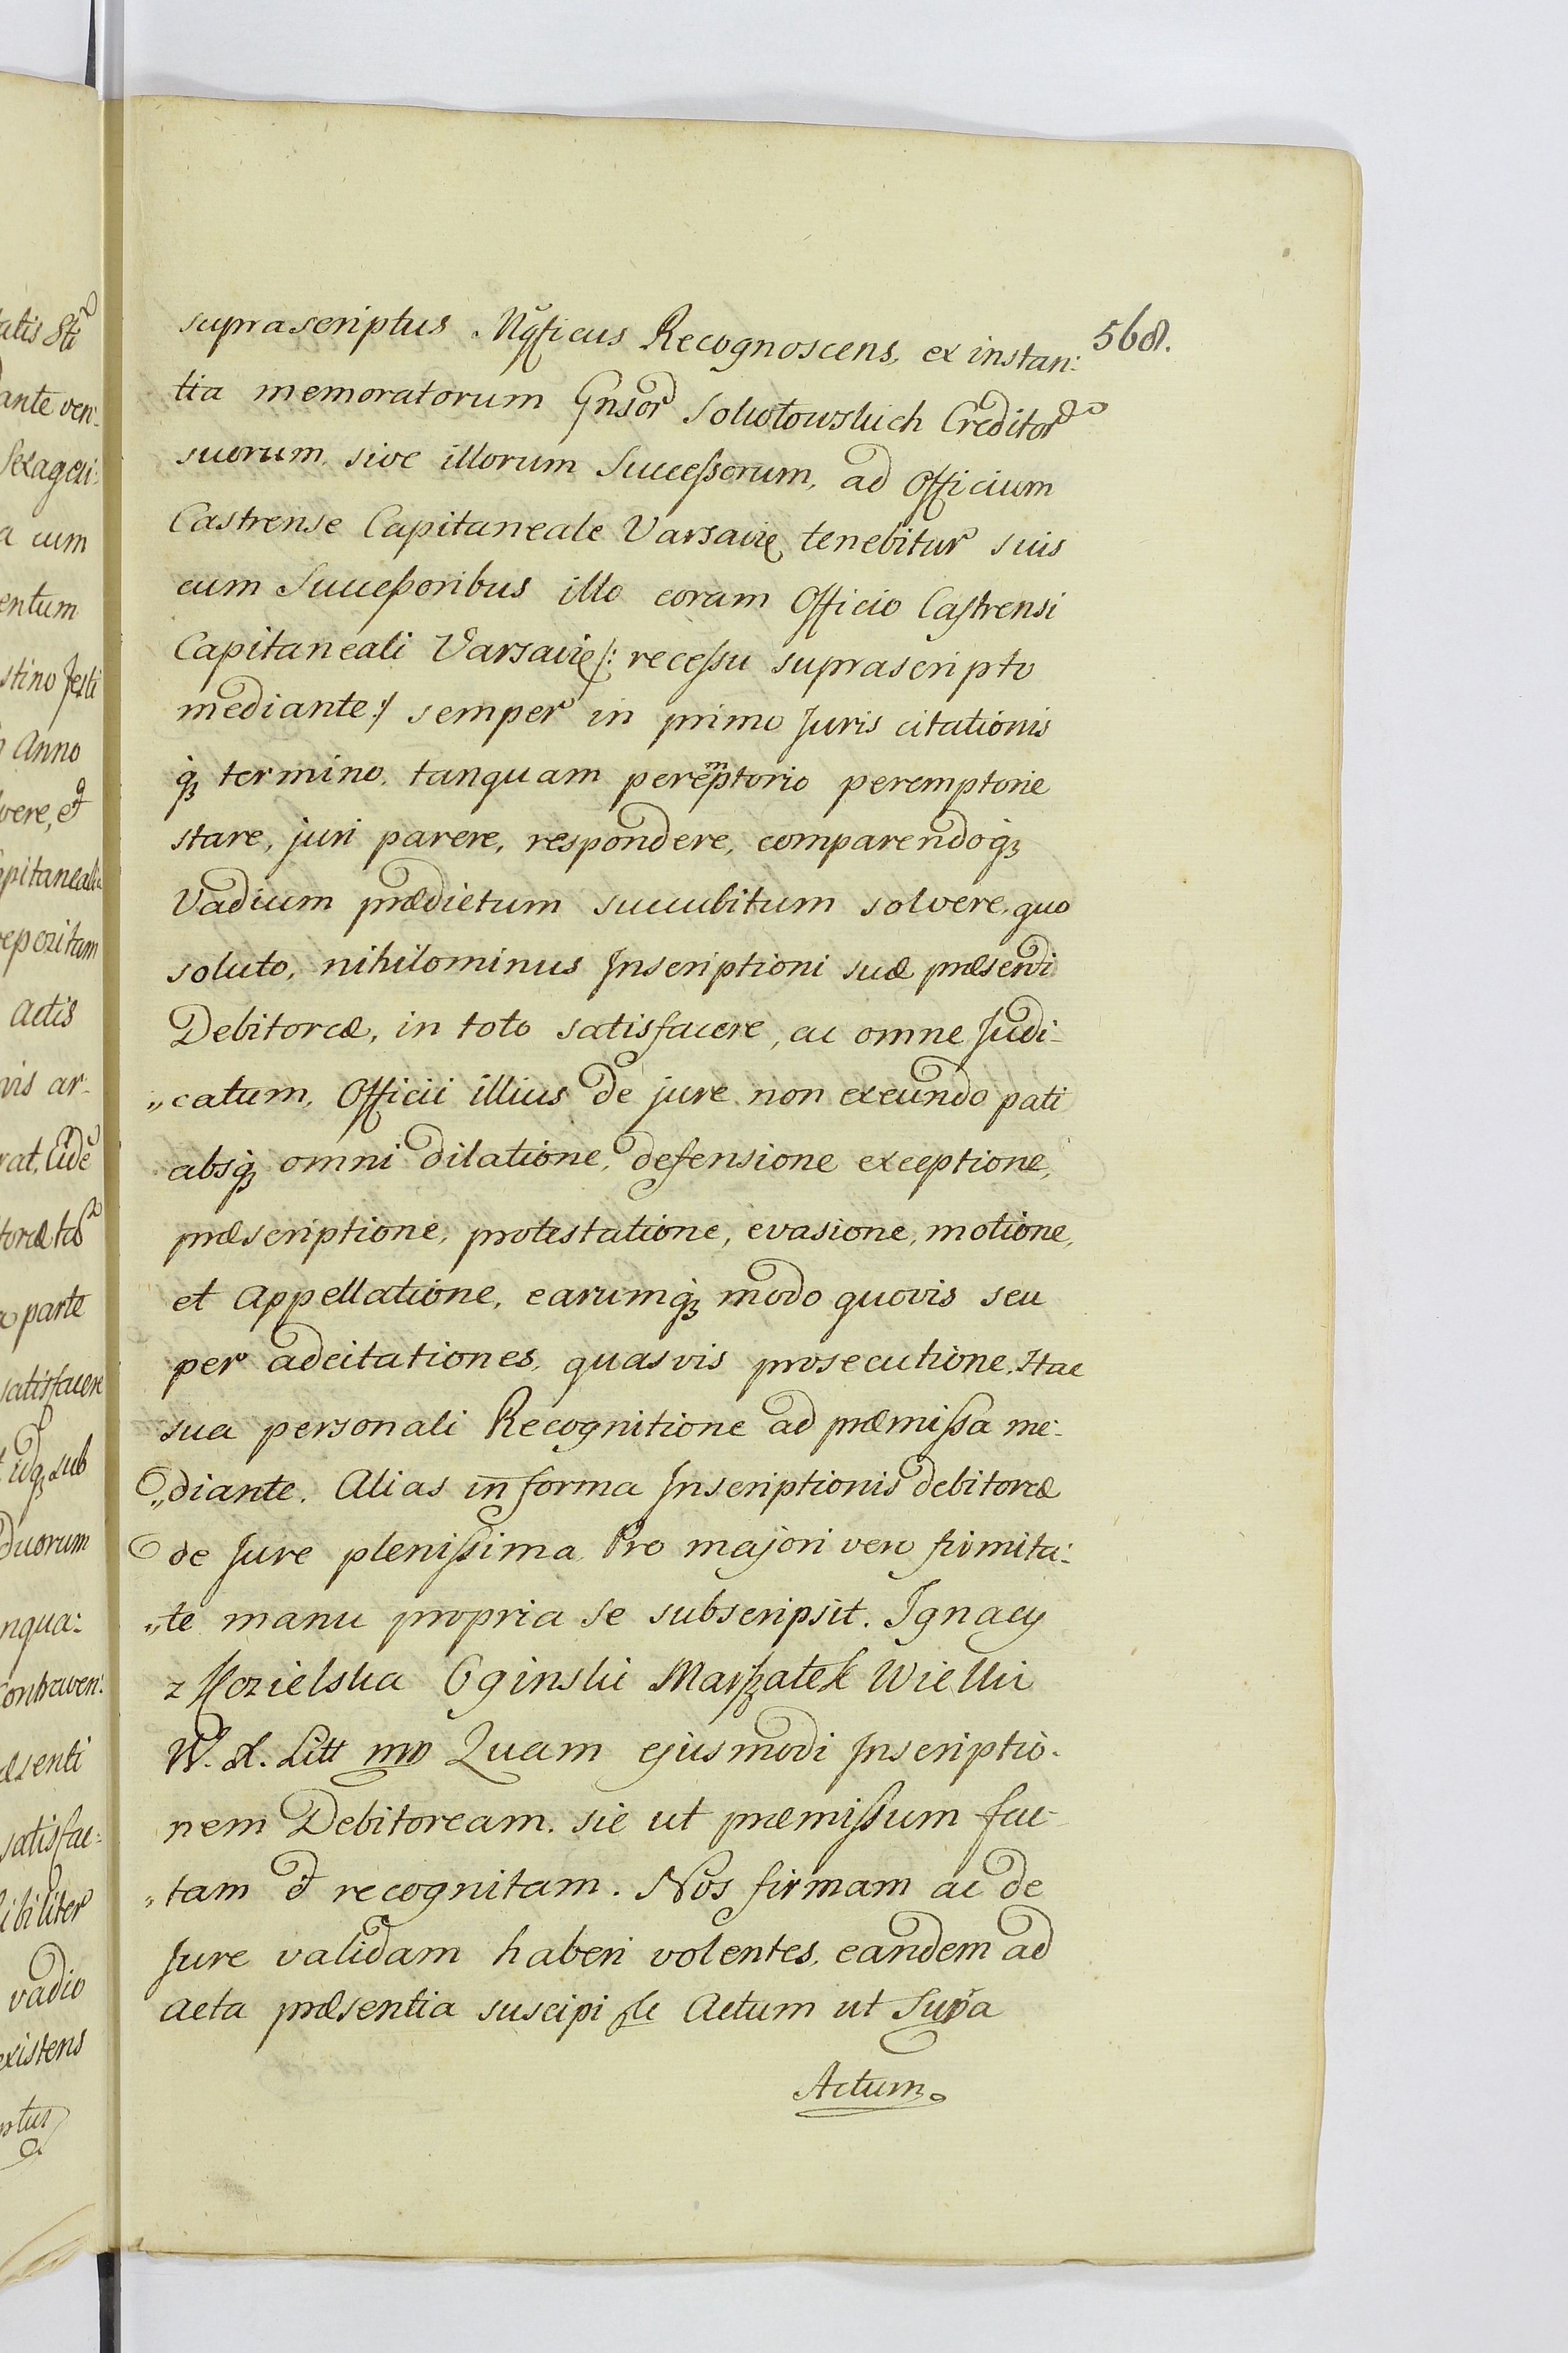 568.
suprascriptus Mgficus Recognoscens, ex instan:
tia memoratorum Gnsor Sokołowskich Creditor
suorum, sive illorum Successorum, ad Officium
Castrense Capitaneale Varsavię tenebitur suis
cum Successoribus illo coram Officio Castrensi
Capitaneali Varsavię /: recessu suprascripto
mediante :/ semper in primo Juris citationis
q3 termino, tanquam peremptorio peremptorie
stare, juri parere, respondere, comparendoq3
Vadium prædictum succubitum solvere, quo
soluto, nihilominus Inscriptioni suæ præsenti
Debitoreæ, in toto satisfacere, ac omne Judi-
„catum, Officii illius de jure non exeundo pati
absq3 omni dilatione, defensione exceptione,
præscriptione, protestatione, evasione, motione,
et Appellatione, earumq3 modo quovis seu
per adcitationes, quasvis prosecutione. Hac
sua personali Recognitione ad præmissa me-
„diante. Alias in forma Inscriptionis debitoreæ
de Jure plenissima. Pro majori vero firmita-
„te manu propria se subscripsit. Ignacy
z Kozielska Oginski Marszałek Wielki
W. X. Litt mp Quam ejusmodi Inscriptio-
nem Debitoream, sic ut præmissum fac-
„tam et recognitam. Nos firmam ac de
Jure validam haberi volentes, eandem ad
acta præsentia suscipi Actum ut Supra
Actum